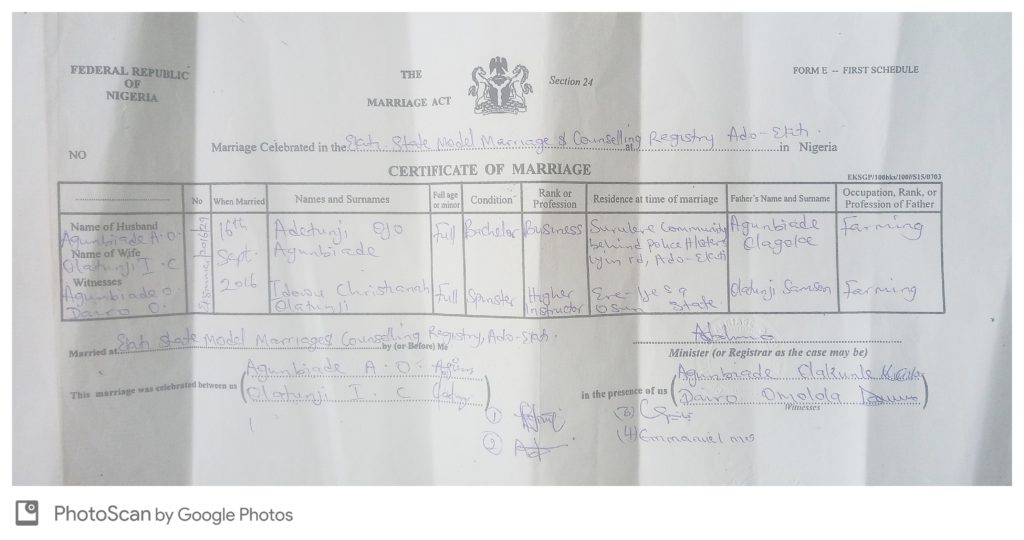 FEDERAL REPUBLIC
OF
NIGERIA
THE
MARRIAGE ACT
Section 24
FORM E -- FIRST SCHEDULE
NO
Marriage Celebrated in the Ekiti State Model Marriage & Counselling at Registry Ado-Ekiti. in Nigeria
CERTIFICATE OF MARRIAGE
EKSGP/100bks/100f/S15/0703
No
When Married
Names and Surnames
Full age or minor
Condition
Rank or Profession
Residence at time of marriage
Father's Name and Surname
Occupation, Rank, or Profession of Father
Name of Husband
Agunbiade A.O.
Name of Wife
Olatunji I.C
Witnesses
Agunbiade O.
Dairo O.
16th
Sept.
2016
Adetunji Ojo
Agunbiade
Full
Bachelor
Business
Surulere Community
behind Police
rd, Ado-Ekiti
Agunbiade
Farming
Idowu Christianah
Olatunji
Full
Spinster
Higher
Instructor
Osun State.
Olatunji Samson
Farming
Married at Ekiti State Model Marriages Counselling Registry, Ado-Ekiti. by (or Before) Me
Minister (or Registrar as the case may be)
This marriage was celebrated between us
Agunbiade A.O.
Olatunji I.C
in the presence of us
Agunbiade Olakunle
Dairo Omolola
Witnesses
(1)
(2)
(3)
(4) Emmanuel
PhotoScan by Google Photos